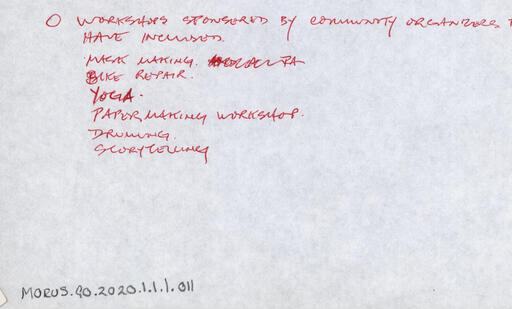 O WORKSHOPS SPONSERED BY COMMUNITY ORGANIZERS
HAVE INCLUDED.
MASK MAKING.
BIKE REPAIR.
YOGA.
PAPERMAKING WORKSHOP.
DRUMING.
STORYTELLING
MORUS.90.2020.1.1.1.011